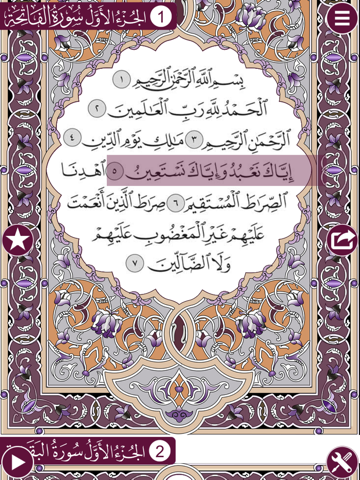 الجزء الأول سورة الفاتحة 1
بِسْمِ اللَّهِ الرَّحْمَٰنِ الرَّحِيمِ ١
الْحَمْدُ لِلَّهِ رَبِّ الْعَالَمِينَ ٢
الرَّحْمَٰنِ الرَّحِيمِ ٣ مَالِكِ يَوْمِ الدِّينِ ٤
إِيَّاكَ نَعْبُدُ وَإِيَّاكَ نَسْتَعِينُ ٥ اهْدِنَا
الصِّرَاطَ الْمُسْتَقِيمَ ٦ صِرَاطَ الَّذِينَ أَنْعَمْتَ
عَلَيْهِمْ غَيْرِ الْمَغْضُوبِ عَلَيْهِمْ
وَلَا الضَّالِّينَ ٧
الجزء الأول سورة البق 2